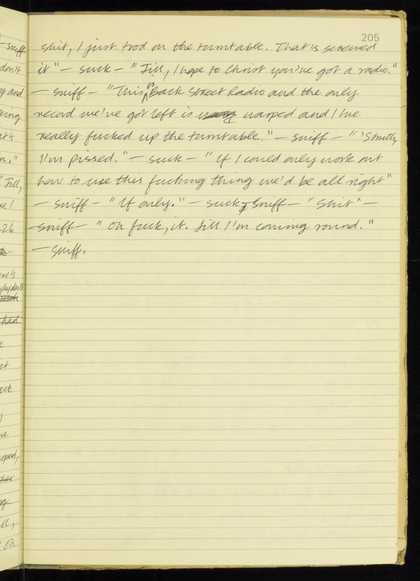 205
shit, I just trod on the turntable. That is screwed
it" - suck - "Jill, I hope to Christ you've got a radio."
- sniff - "This is Back Street Radio and the only
record we've got left is wang warped and I've
really fucked up the turntable." - sniff - "'Strewth,
I'm pissed." - suck - "If I could only work out
how to use this fucking thing we'd be all right"
- sniff - "If only." - suck, sniff - "Shit" -
sniff - "Oh fuck, it. Jill I'm coming round."
- sniff.